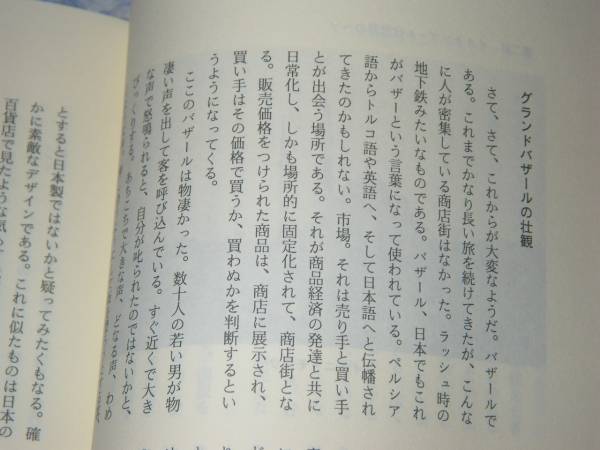 グランドバザールの壮観
さて、さて、これからが大変なようだ。バザールで
ある。これまでかなり長い旅を続けてきたが、こんな
に人が密集している商店街はなかった。ラッシュ時の
地下鉄みたいなものである。バザール、日本でもこれ
がバザーという言葉になって使われている。ペルシア
語からトルコ語や英語へ、そして日本語へと伝播され
てきたのかもしれない。市場。それは売り手と買い手
とが出会う場所である。それが商品経済の発達と共に
日常化し、しかも場所的に固定化されて、商店街とな
る。販売価格をつけられた商品は、商店に展示され、
買い手はその価格で買うか、買わぬかを判断するとい
うようになってくる。
ここのバザールは物凄かった。数十人の若い男が物
凄い声を出して客を呼び込んでいる。すぐ近くで大き
な声で怒鳴られると、自分が叱られたのではないかと、
びっくりする。あちこちで大きな声、どなる声、わめ
とすると日本製ではないかと疑ってみたくもなる。確
かに素敵なデザインである。これに似たものは日本の
百貨店で見たような気